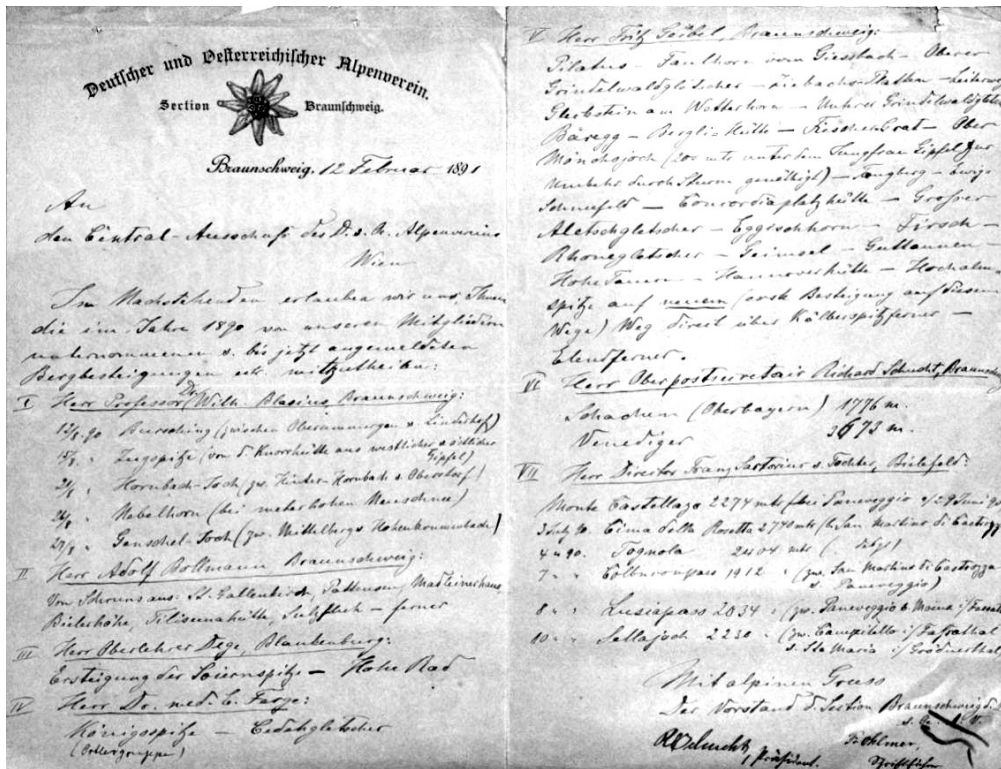 Deutscher und Oesterreichischer Alpenverein.
Section Braunschweig.
Braunschweig, 12 Februar 1891
An
den Central-Ausschuß des D. u. Ö. Alpenvereins
Wien
Im Nachstehenden erlauben wir uns, Ihnen
die im Jahre 1890 von unseren Mitgliedern
unternommenen u. bis jetzt angemeldeten
Bergbesteigungen etc. mitzutheilen:
I Herr Professor Dr. Wilh. Blasius, Braunschweig:
(zwischen Oberammergau u. Linderhof)
Zugspitze (von d. Knorrhütte aus westlicher u. östlicher
Gipfel)
Hornbach-Joch (zw. Hinter-Hornbach u. Oberstdorf)
Nebelhorn (bei meterhohem Neuschnee)
Genschel-Joch (zw. Mittelberg u. Hohenkrummbach)
II Herr Adolf Bollmann Braunschweig:
Von Schruns aus: St. Gallenkirch, Pattenen, Madleinerhaus
Bielerhöhe, Tilisunahütte, Sulzfluh - ferner
III Herr Oberlehrer Dege, Blankenburg:
Ersteigung der Soiernspitze - Hohe Rad
IV Herr Dr. med. C.
Königsspitze - Cedehgletscher
(Ortlergruppe)
V Herr Fritz Geibel Braunschweig:
Pilatus - Faulhorn vom Giessbach - Oberer
Grindelwaldgletscher -
Gleckstein am Wetterhorn - Unterer Grindelwaldgletscher
Bäregg - Bergli-Hütte - Fiescher Grat - Ober
Mönchsjoch (200 mtr unter dem Jungfrau Gipfel zur
Umkehr durch Sturm genöthigt) - - Ewige
Schneefeld - Concordiaplatzhütte - Großer
Aletschgletscher - Eggischhorn - Fiesch -
Rhonegletscher - Grimsel - Guttannen -
Hohe Tauern - Hannoverhütte - Hochalm
spitze auf neuem (erste Besteigung auf diesem
Wege) Weg direct über Kälberspitzferner -
Elendferner.
VI Herr Oberpostsecretair Richard Schucht, Braunschweig
Schachen (Oberbayern) 1776 m.
Venediger 3673 m.
VII Herr Director Franz Sartorius u. Tochter, Bielefeld:
Monte Castellazo 2274 mtr (bei Paneveggio) 29 Juni 90
3 July 90. Cima della Rosetta 2740 mtr (b. San Martino di Castrozza)
4 " 90. Tognola 2404 mtr ( dtgl.)
7 " " Colbriconpass 1912 " (zw. San Martino di Castrozza
u. Paneveggio)
8 " " Lusiapass 2034 " (zw. Paneveggio & Moena i/ Fassathal)
10 " " Sellajoch 2230 " (zw. Campitello i/ Fassathal
u. Sta Maria i/ Grödnerthal)
Mit alpinem Gruss
Der Vorstand d. Section Braunschweig d. D.
u. Ö. A. V.
R Schucht, Präsident.
Fr. Ohlmer,
Schriftführer